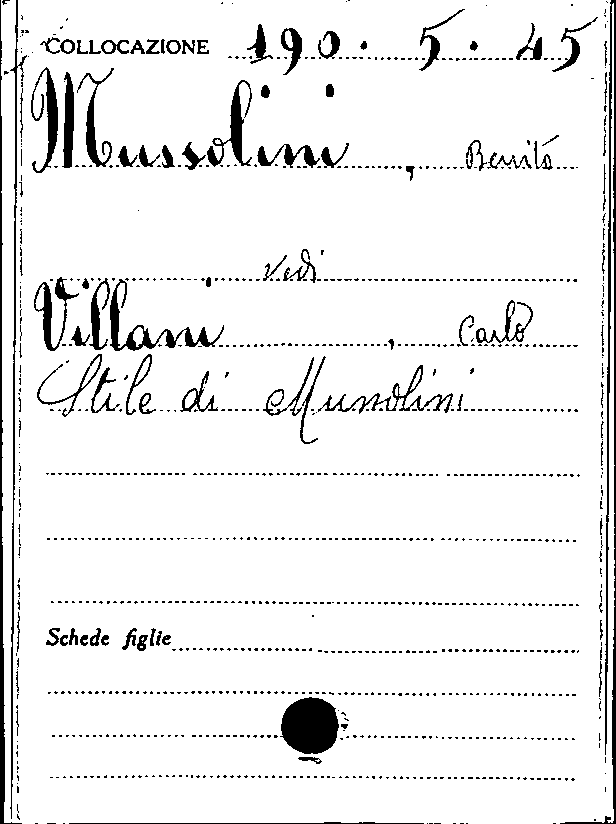 COLLOCAZIONE 190. 5. 45
Mussolini, Benito
Vedi
Villani, Carlo
Stile di Mussolini
Schede figlie